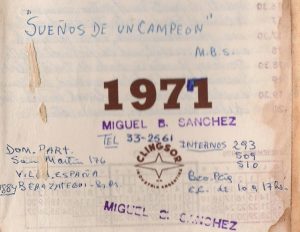 "SUEÑOS DE UN CAMPEON"
M.B.S.
1971
MIGUEL B. SANCHEZ
TEL 33-2561
INTERNOS 293
509
510
CLINGSOR
INDUSTRIA ARGENTINA
DOM. PART.
San Martín 176
VILLA ESPAÑA
1884 BERAZATEGUI - Bs. As.
Bco. Pcia
c.c. de 10 a 17 hs.
MIGUEL B. SANCHEZ